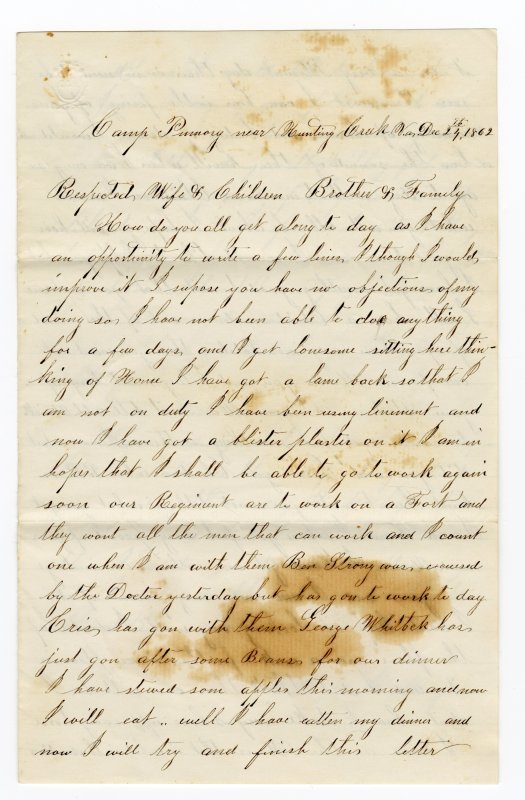 Camp Pumory near Hunting Creek Va, Dec 24th, 1862
Respected Wife & Children Brother & Family
How do you all get along to day as I have
an opportivity to write a few lines, I though I would,
improve it I supose you have no objections, of my
doing so, I have not been able to doe anything
for a few days, and I get lonesome sitting here thin-
king of Home I have got a lame back so that I
am not on duty I have been using liniment and
now I have got a blister plaster on it I am in
hopes that I shall be able to go to work again
soon our Regiment are to work on a Fort and
they want all the men that can work and I count
one when I am with them Ben Strong was, excused
by the Doctor yesterday but has gon to work to day
Cris, has gon with them George Whitbek has
just gon after some Beans, for our dinner
I have stewed som apples this morning and now
I will eat .. well I have eatten my dinner and
now I will try and finish this letter